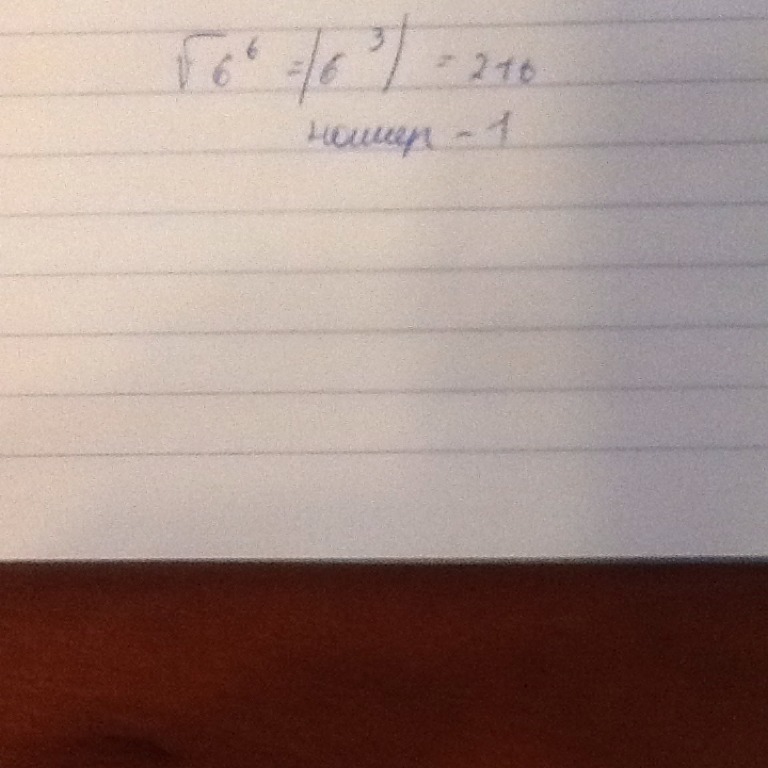 √6⁶ = |6³| = 216
номер - 1